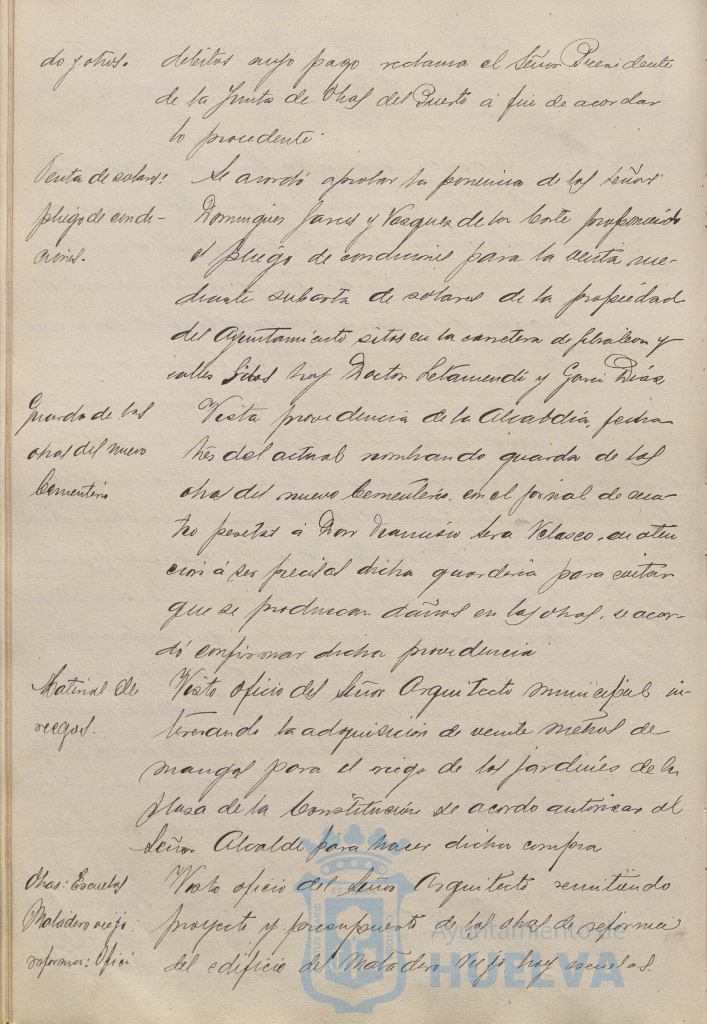 do y otros.
débitos cuyo pago reclama el Señor Presidente
de la Junta de Obras del Puerto á fin de acordar
lo procedente.
Venta de solares:
pliego de condi-
ciones.
Se acordó aprobar la ponencia de los Señores
Dominguez Garces y Vazquez de la Corte proponiendo
el pliego de condiciones para la venta me-
diante subasta de solares de la propiedad
del Ayuntamiento sitos en la carretera de Gibraleon y
calles Silos hoy Doctor Letamendi y Garci Diaz
Guarda de las
obras del nuevo
Cementerio
Vista providencia de la Alcaldia, fecha
tres del actual nombrando guarda de las
obras del nuevo Cementerio, con el jornal de cua-
tro pesetas á Don Francisco Sera Velasco, en aten
ción á ser precisa dicha guarderia para evitar
que se produzcan daños en las obras, se acor-
dó confirmar dicha providencia
Material de
riegos.
Visto oficio del Señor Arquitecto municipal in-
teresando la adquisición de veinte metros de
mangas para el riego de los jardines de la
plaza de la Constitución se acordó autorizar al
Señor Alcalde para hacer dicha compra
Obras: Escuelas
Matadero viejo
reforma: Ofici
Visto oficio del Señor Arquitecto remitiendo
proyecto y presupuesto de las obras de reforma
del edificio del Matadero viejo hoy escuelas.
Ayuntamiento de
HUELVA